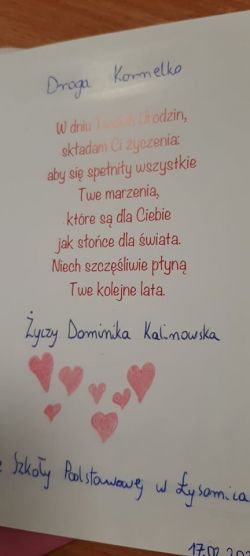 Droga Kornelko
W dniu Twoich Urodzin,
składam Ci życzenia:
aby się spełniły wszystkie
Twe marzenia,
które są dla Ciebie
jak słońce dla świata.
Niech szczęśliwie płyną
Twe kolejne lata.
Życzy Dominika Kalinowska
Szkoły Podstawowej w Łysomica
17.02.20